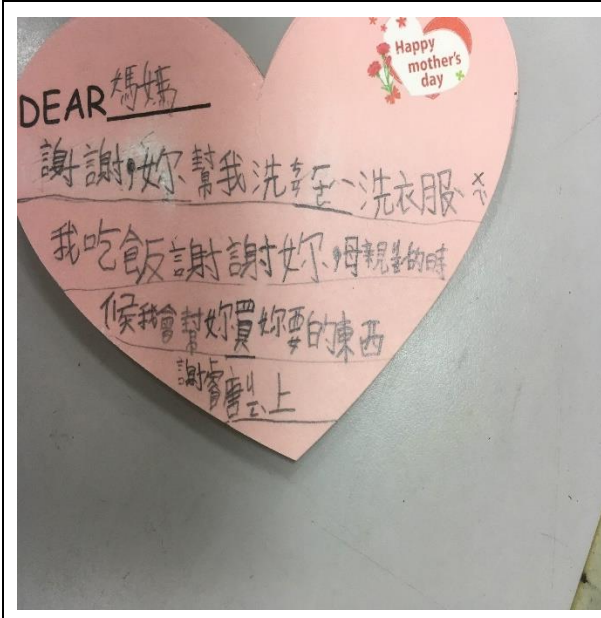 Happy
mother's
day
DEAR 媽媽
謝謝,妳幫我洗、洗衣服、
我吃飯謝謝妳,母親的時
候我會幫妳買妳要的東西
謝睿上